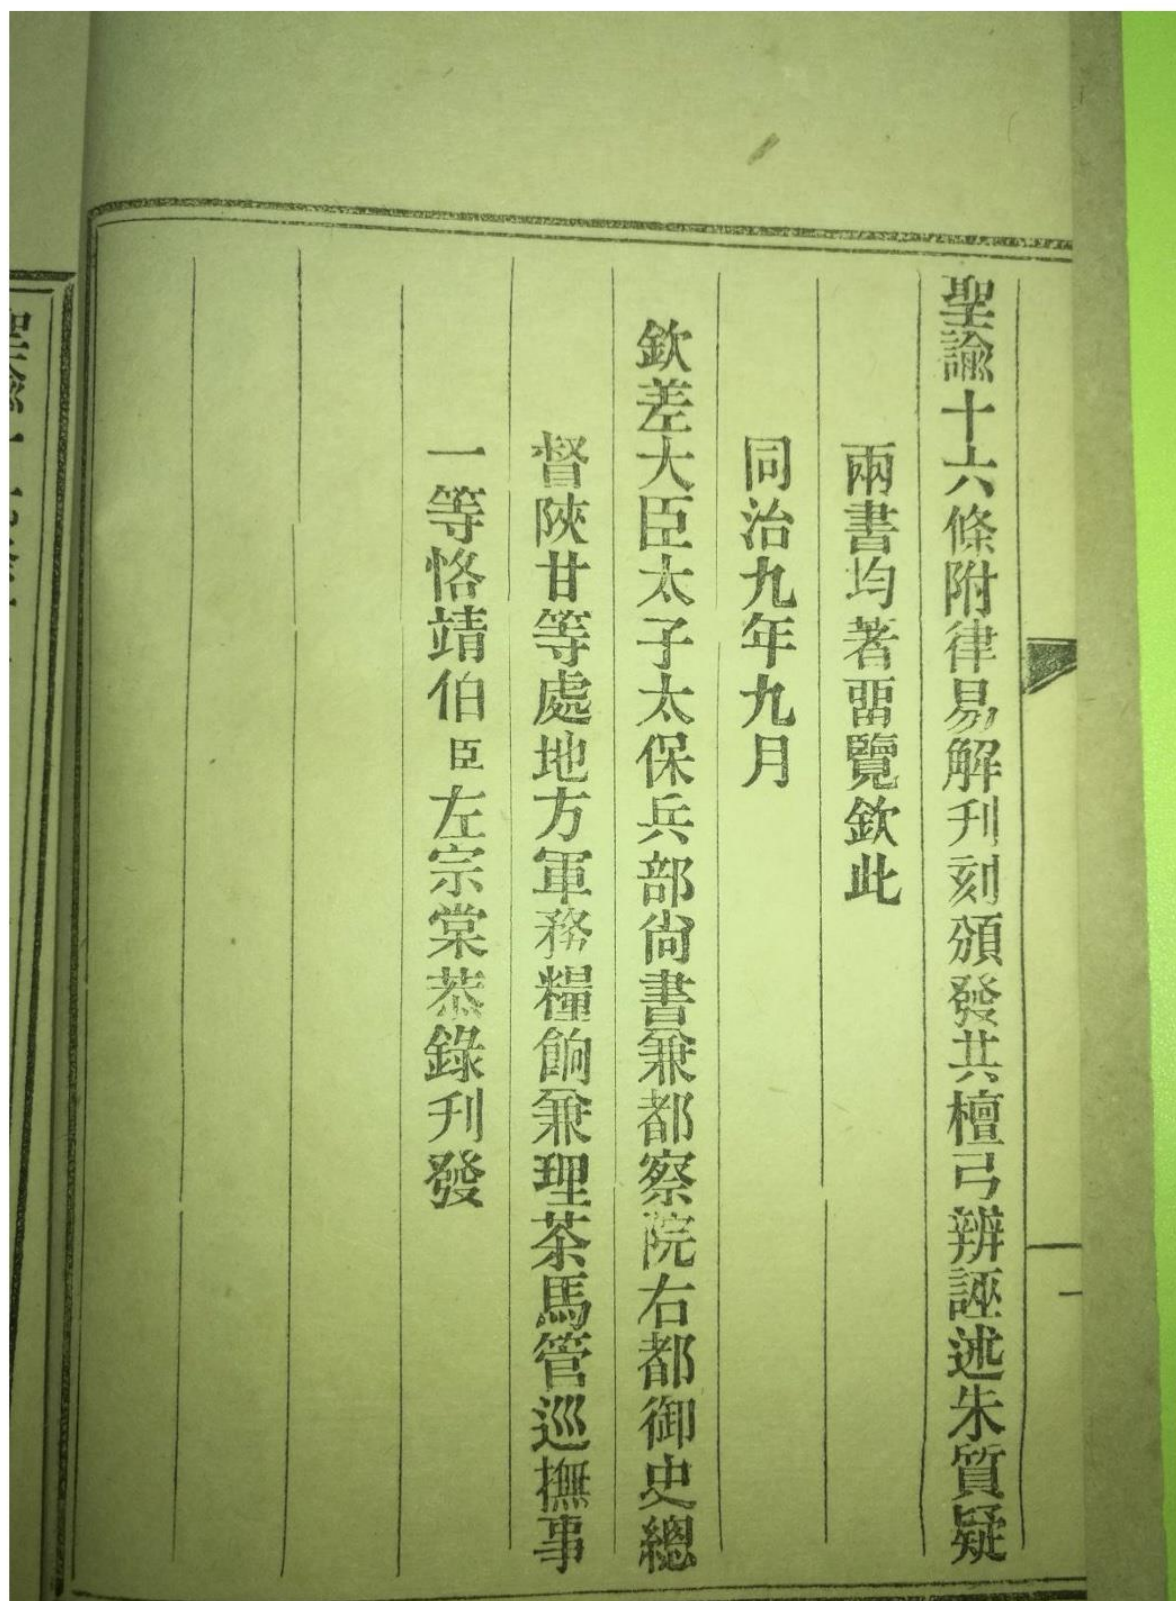 聖諭十六條附律易解刋刻頒發共檀弓辨誣述朱質疑
兩書均著畱覽欽此
同治九年九月
欽差大臣太子太保兵部尙書兼都察院右都御史總
督陝甘等處地方軍務糧餉兼理茶馬管巡撫事
一等恪靖伯臣左宗棠恭錄刋發